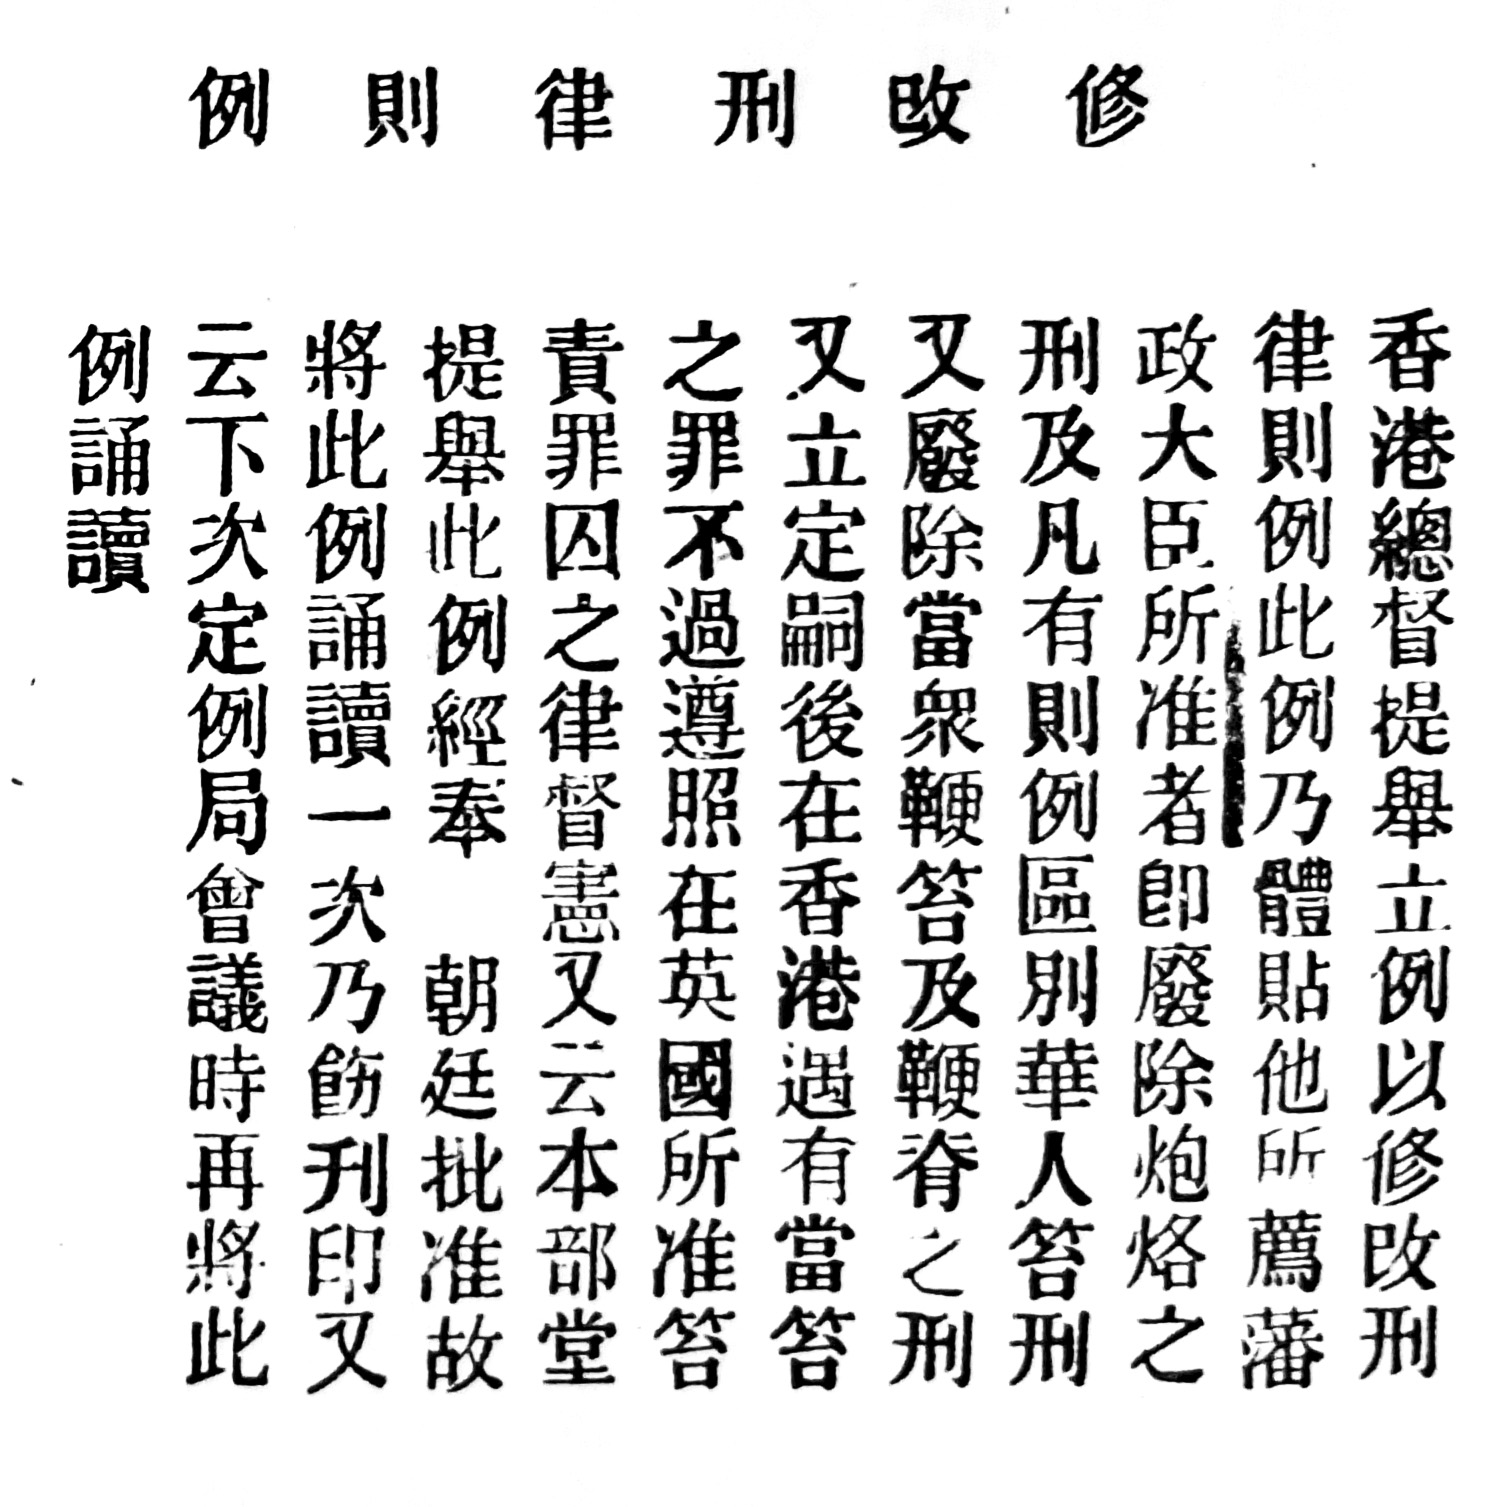 修改刑律則例
香港總督提舉立例以修改刑
律則例此例乃體貼他所薦藩
政大臣所准者卽廢除炮烙之
刑及凡有則例區別華人笞刑
又廢除當衆鞭笞及鞭脊之刑
又立定嗣後在香港遇有當笞
之罪不過遵照在英國所准笞
責罪囚之律督憲又云本部堂
提舉此例經奉 朝廷批准故
將此例誦讀一次乃飭刊印又
云下次定例局會議時再將此
例誦讀